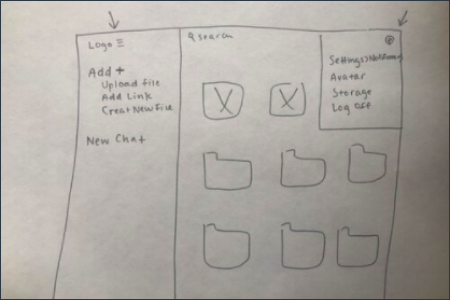 Logo
Search
Add +
Upload file
Add Link
Creat New File
New Chat
X
X
Settings>Notifications
Avatar
Storage
Log Off